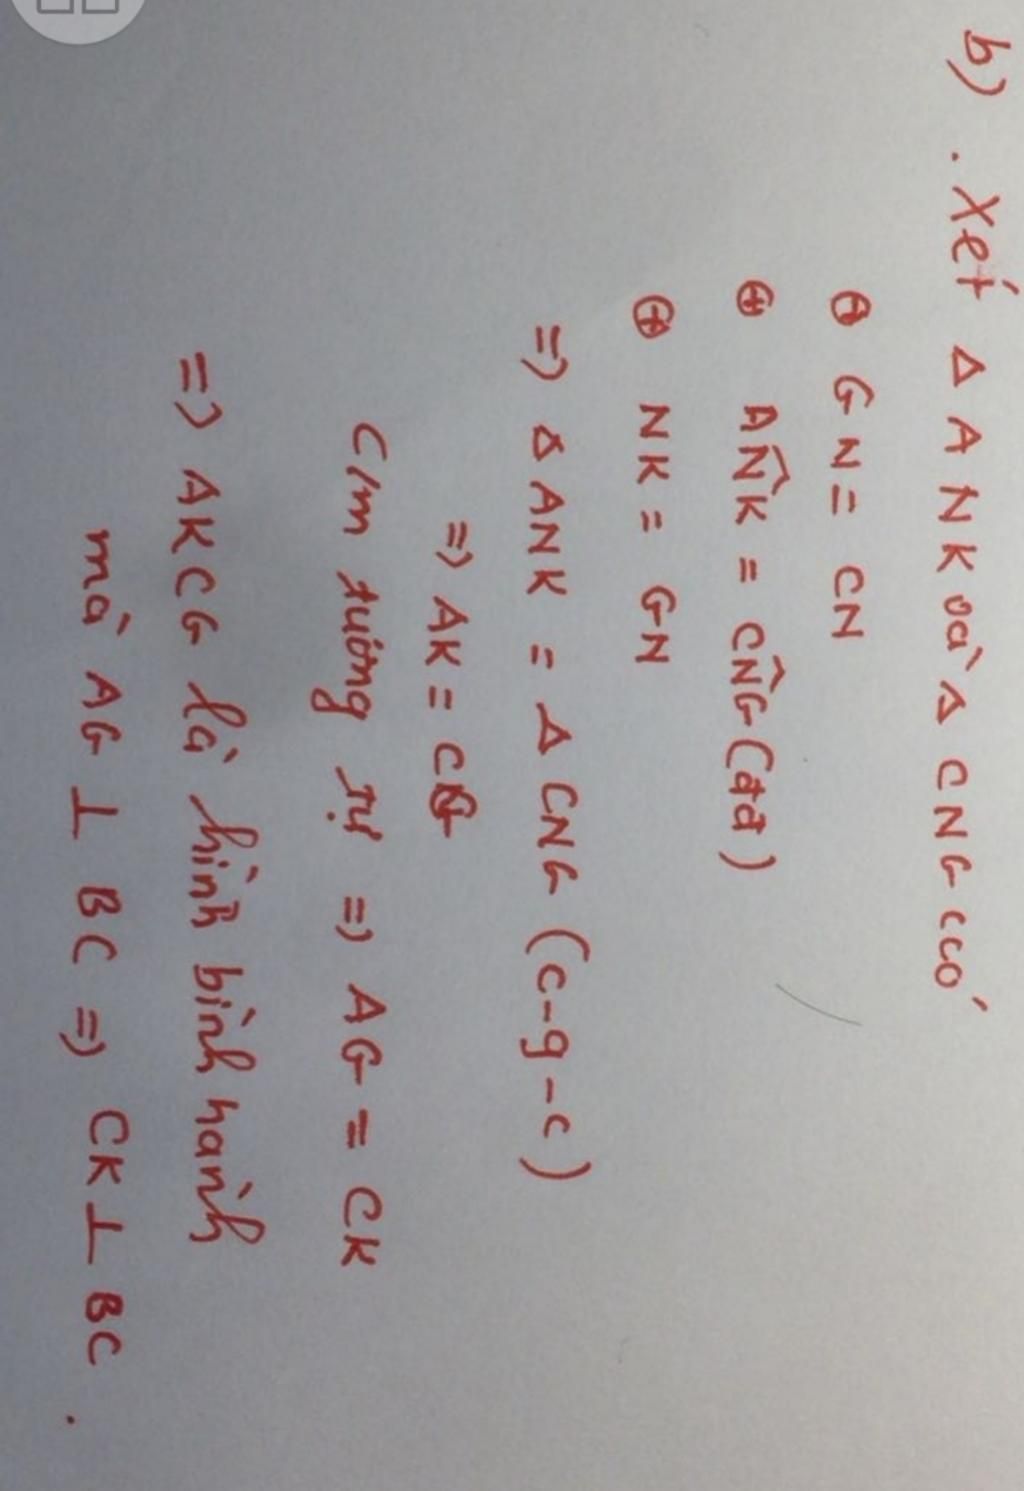 b) . Xét Δ ANK và Δ CNG cco
⊕ GN = CN
⊕ ANK̂ = CNĜ (đđ)
⊕ NK = GN
=> Δ ANK = Δ CNG (c-g-c)
=> AK = CG
C/m tương tự => AG = CK
=> AKCG là hình bình hành
mà AG ⊥ BC => CK ⊥ BC.